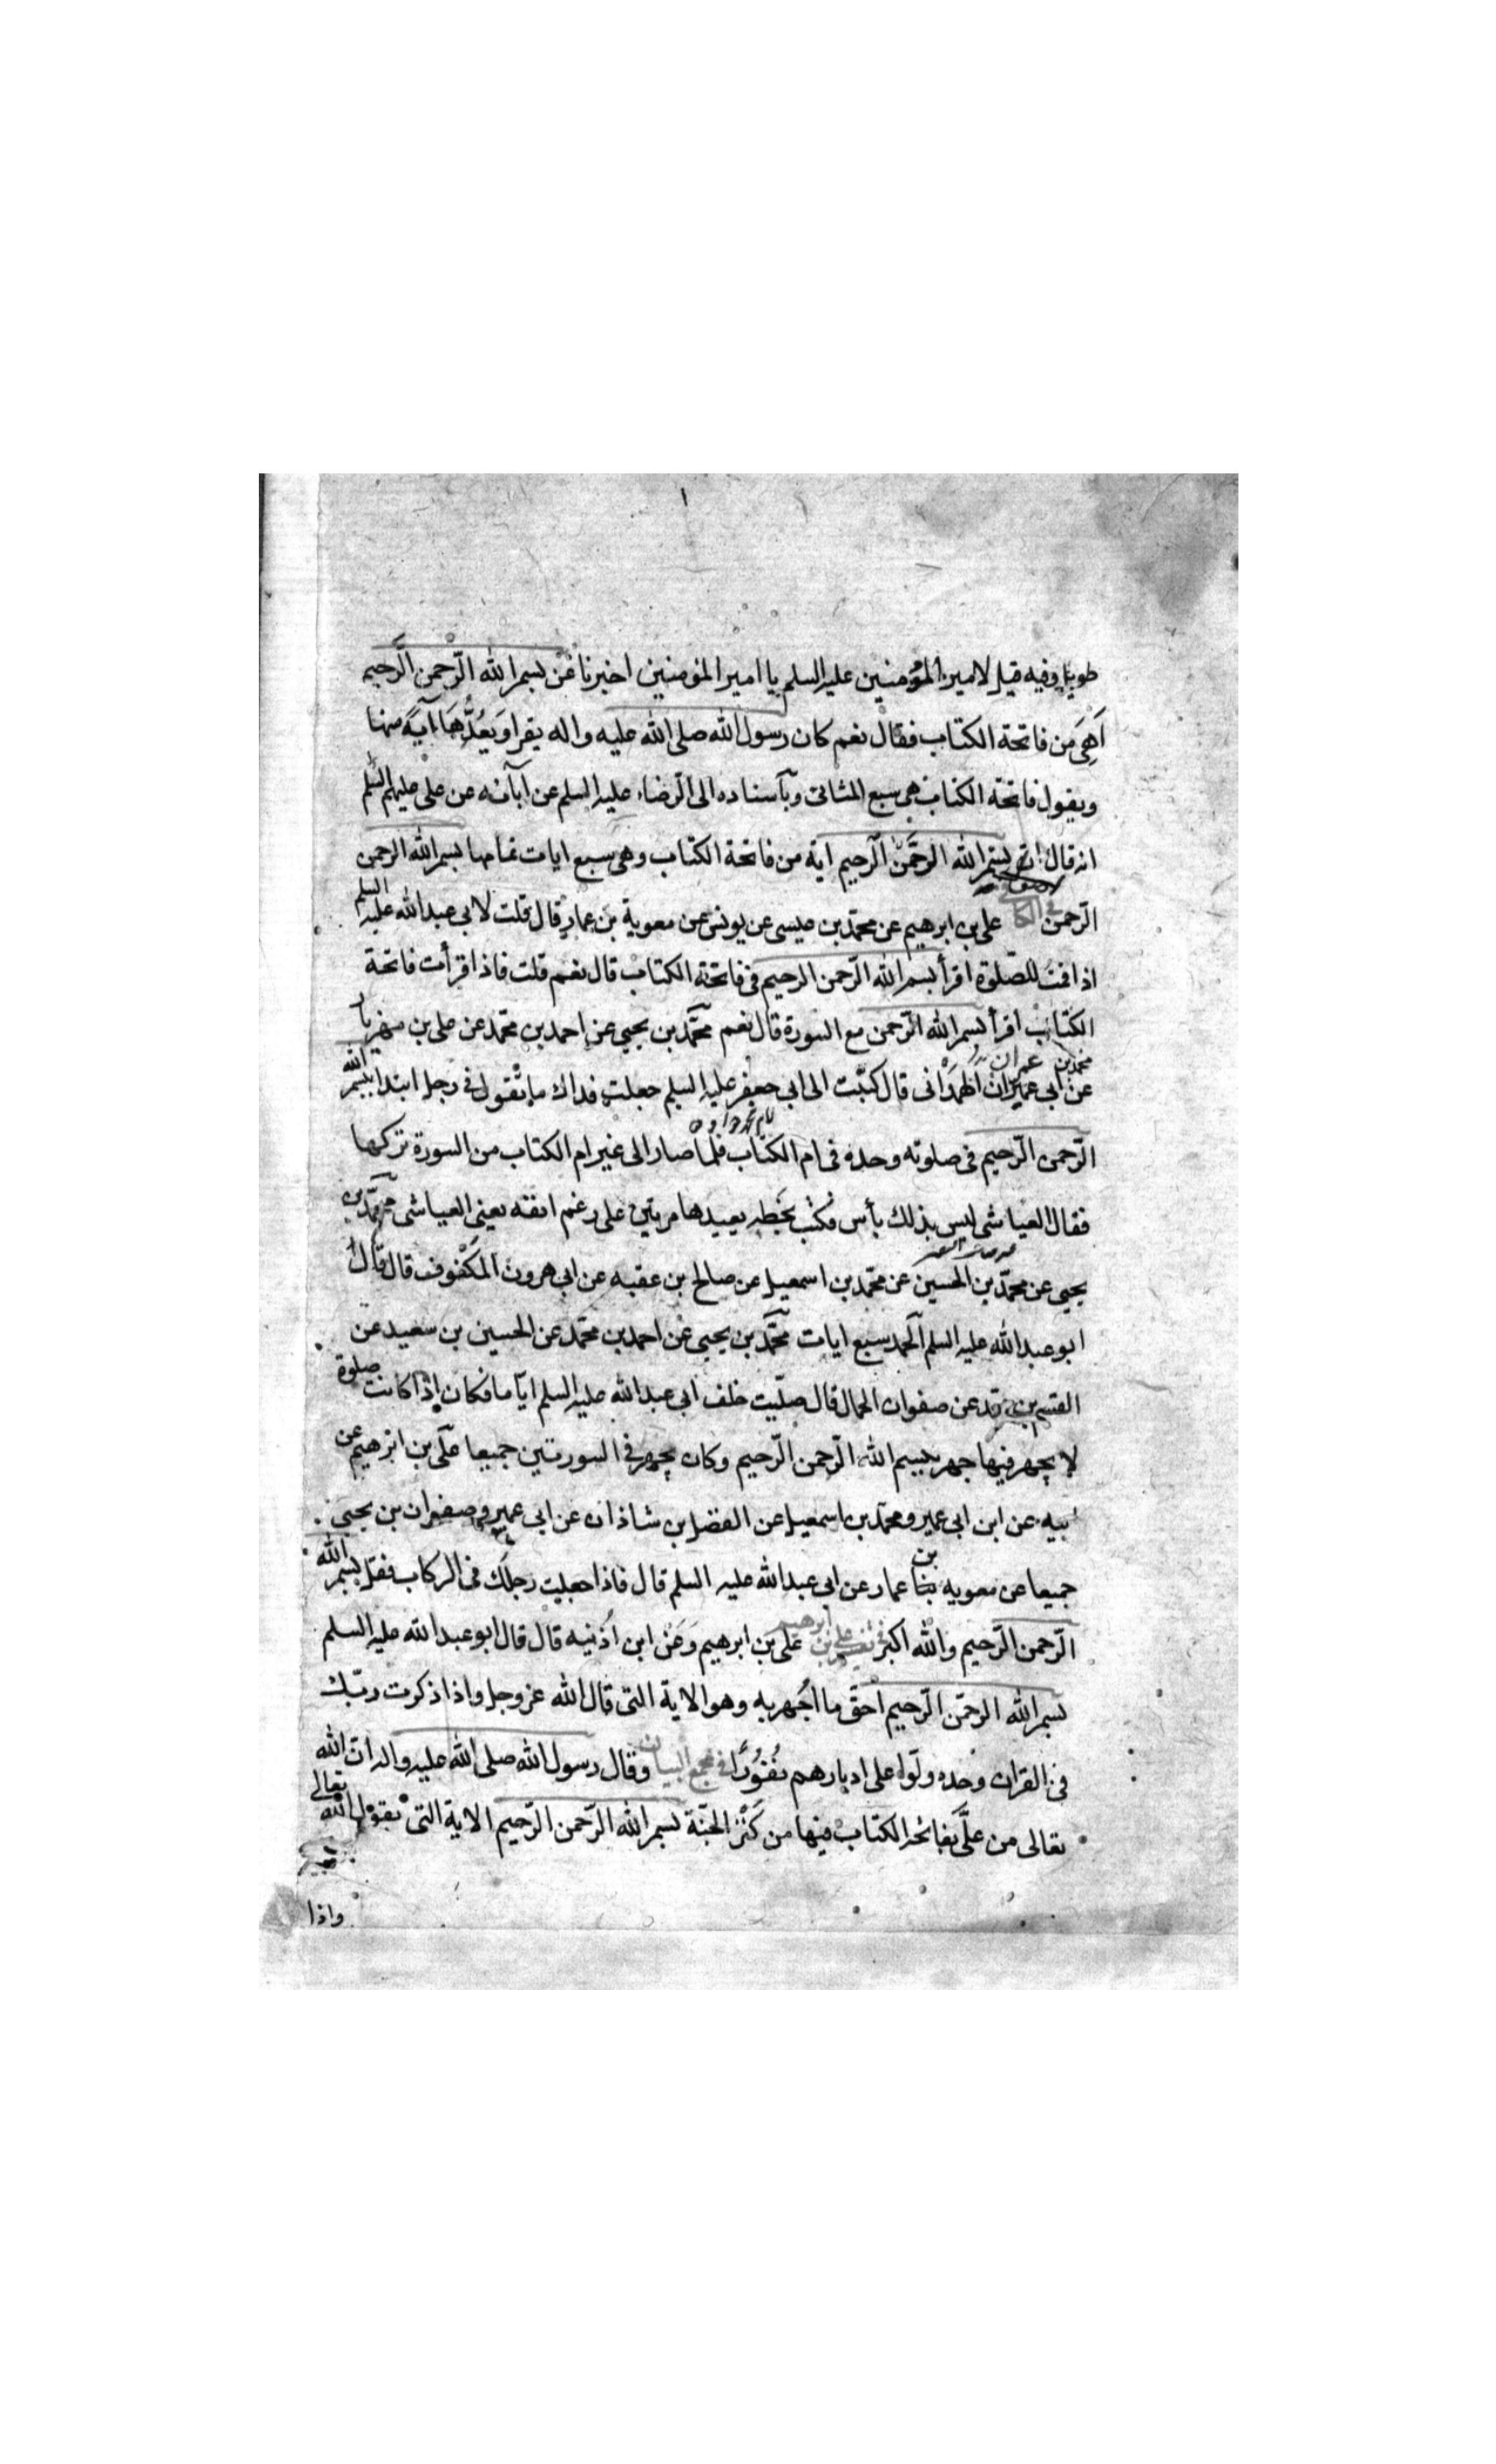 ١
طويل وفيه قيل لامير المؤمنين عليه السلم يا امير المؤمنين اخبرنا عن بسم الله الرّحمن الرّحيم
اَهِىَ من فاتحة الكتاب فقال نعم كان رسول الله صلى الله عليه واله يقرا وَيَعُدُّهَا آيةً منها
ويقول فاتحة الكتاب هى سبع المثانى وبآسناده الى الرّضا عليه السلم عن آبائه عن على عليهم السلم
انه قال ان بسم الله الرحمن الرحيم اية من فاتحة الكتاب وهى سبع ايات تمامها بسم الله الرحمن
الرّحمن فى الكا على بن ابرهيم عن محمّد بن عيسى عن يونس عن معوية بن عمار قال قلت لابى عبد الله عليه السلم
اذا قمت للصّلوة اقرأ بسم الله الرّحمن الرحيم فى فاتحة الكتاب قال نعم قلت فاذا قرأت فاتحة
الكتاب اقرأ بسم الله الرّحمن مع السورة قال نعم محمّد بن يحيى عن احمد بن محمّد عن على بن مهزيار
محمد بن عمران
عن ابى عميران الهمدانى قال كتبت الى ابى جعفر عليه السلم جعلت فداك ما تقول فى رجل ابتدا ببسم الله
الرّحمن الرّحيم فى صلوته وحده فى ام الكتاب فلما صار الى غير ام الكتاب من السورة تركها
فقال العياشى ليس بذلك بأس فكتب بخطه يعيدها مرتين على رغم انفه يعنى العياشى محمّد بن
يحيى عن محمّد بن الحسين عن محمّد بن اسمعيل عن صالح بن عقبه عن ابى هرون المكفوف قال قال
ابو عبد الله عليه السلم الحمد سبع ايات محمّد بن يحيى عن احمد بن محمّد عن الحسين بن سعيد عن
القسم بن عن صفوان الجمال قال صلّيت خلف ابى عبد الله عليه السلم ايّاما فكان اذا كانت صلوة
لا يجهر فيها جهر ببسم الله الرّحمن الرّحيم وكان يجهر فى السورتين جميعا علىّ بن ابرهيم عن
ابيه عن ابن ابى عمير ومحمّد بن اسمعيل عن الفضل بن شاذان عن ابى عمير وصفوان بن يحيى
جميعا عن معويه بن عمار عن ابى عبد الله عليه السلم قال فاذا جعلت رجلك فى الركاب فقل بسم الله
الرّحمن الرّحيم والله اكبر فى تفسير على بن ابرهيم على بن ابرهيم وعن ابن اُذنيه قال قال ابو عبد الله عليه السلم
بسم الله الرحمّن الرّحيم احقّ ما اُجهر به وهو الاية التى قال الله عز وجل واذا ذكرت ربّك
فى القران وحده ولّوا على ادبارهم نُفُورًا فى مجمع البيان وقال رسول الله صلى الله عليه واله ان الله
تعالى من علىّ بفاتحة الكتاب فيها من كنز الجنّة بسم الله الرّحمن الرّحيم الاية التى يقول الله تعالى
واذا